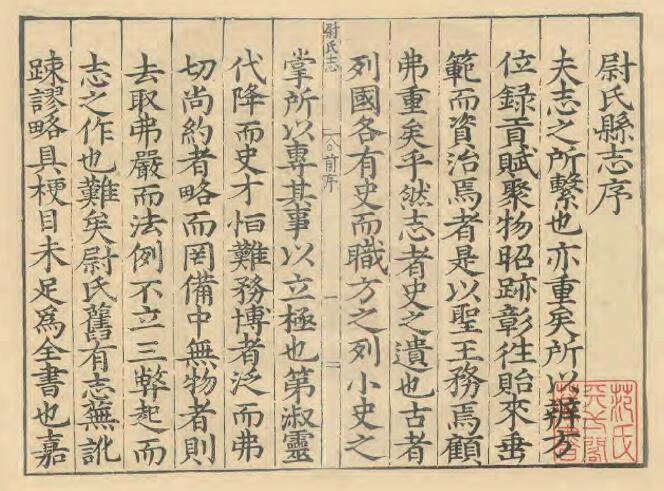 尉氏縣志序
夫志之所繫也亦重矣所以辨方
位録貢賦聚物昭跡彰徃貽來垂
範而資治焉者是以聖王務焉顧
弗重矣乎然志者史之遺也古者
列國各有史而職方之列小史之
尉氏志
前序
一
掌所以專其事以立極也第淑靈
代降而史才恒難務博者泛而弗
切尚約者略而罔備中無物者則
去取弗嚴而法例不立三弊起而
志之作也難矣尉氏舊有志無訛
踈謬略具梗目未足為全書也嘉
范氏
天一閣
藏書